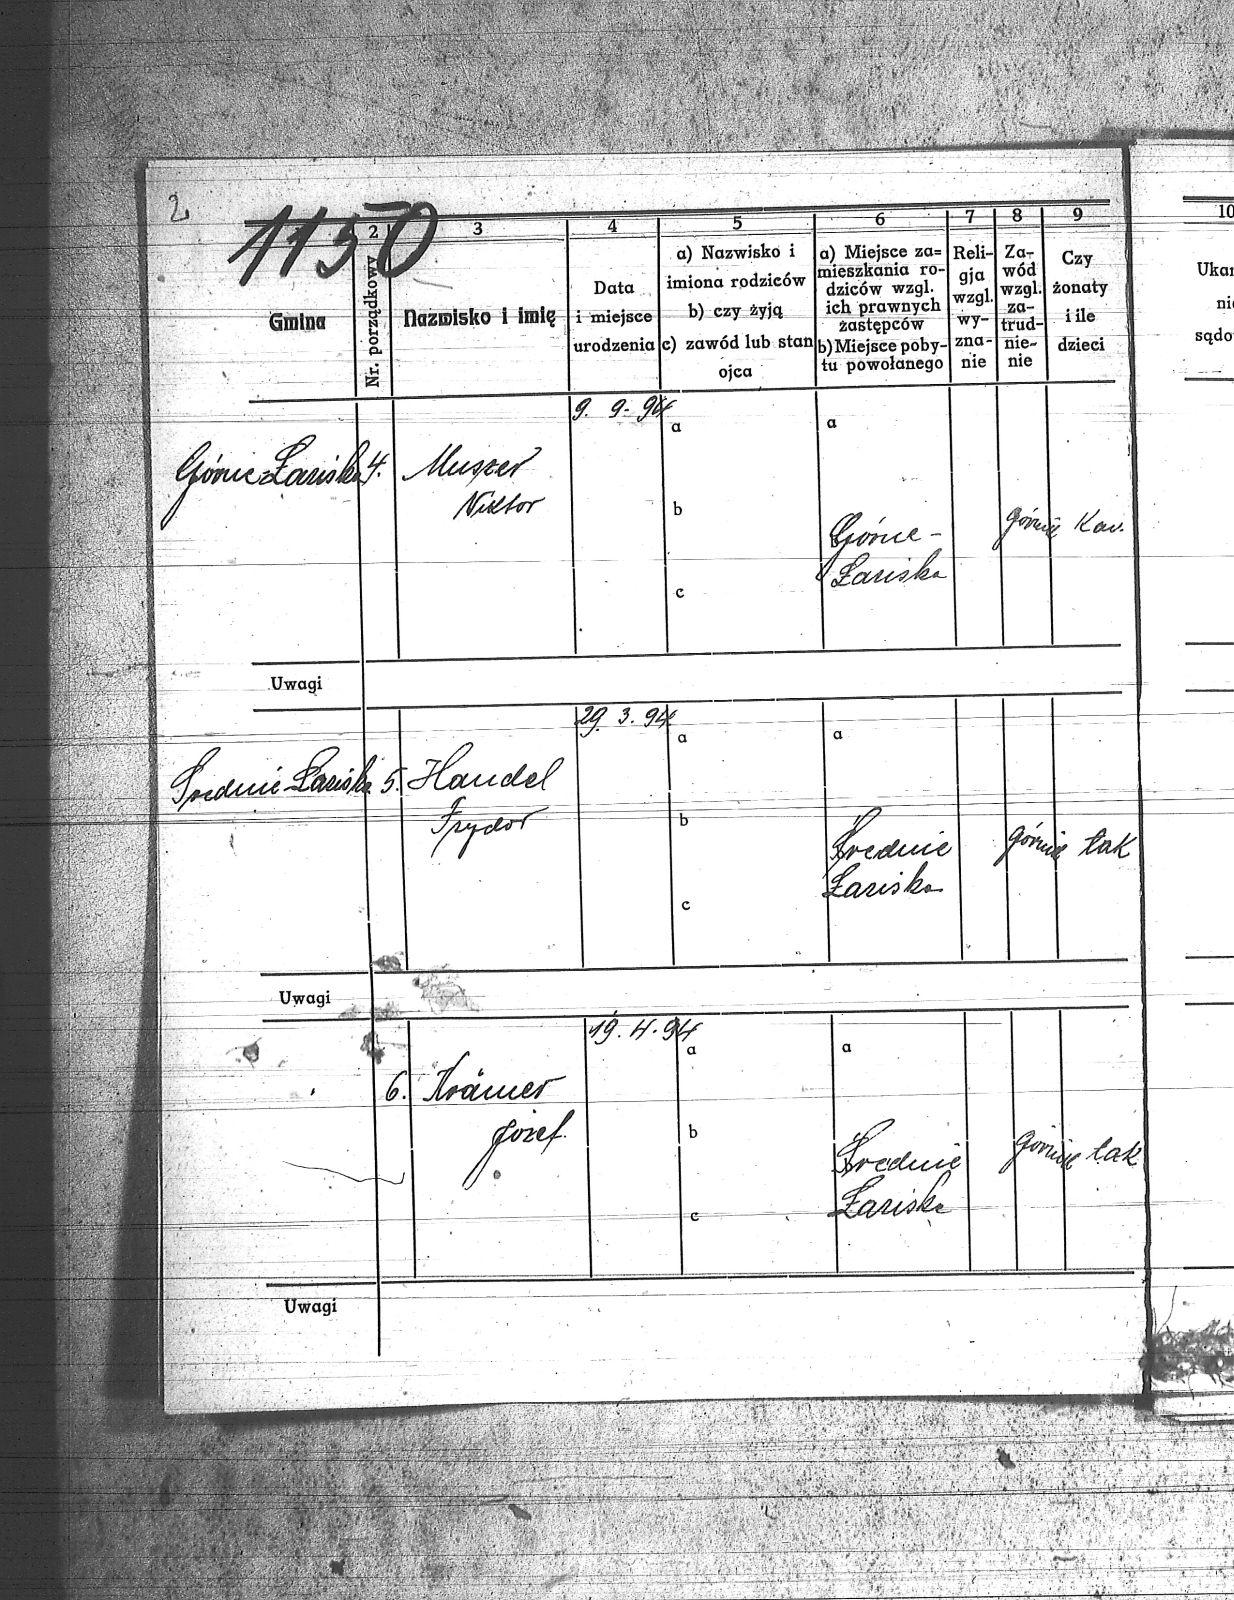 2.
1150
2 3 4 5 6 7 8 9 10
Gmina
Nr. porządkowy
Nazwisko i imię
Data
i miejsce
urodzenia
a) Nazwisko i
imiona rodziców
b) czy żyją
c) zawód lub stan
ojca
a) Miejsce za=
mieszkania ro-
dziców wzgl.
ich prawnych
zastępców
b) Miejsce poby-
tu powołanego
Reli-
gja
wzgl.
wy-
zna-
nie
Za-
wód
wzgl.
za-
trud-
nie-
nie
Czy
żonaty
i ile
dzieci
Ukar
nie
sądo
9. 9. 94
a a
Górne-Łaziska 4. Muszer
Wiktor
b
Górne-
Łaziska
górnik Kaw.
c
Uwagi
29. 3. 94
a a
Średnie-Łaziska 5. Handel
Fryder
b
Średnie
Łaziska
górnik tak
c
Uwagi
19. 4. 94
a a
6. Krämer
Józef.
b
Średnie
Łaziska
górnik tak
c
Uwagi